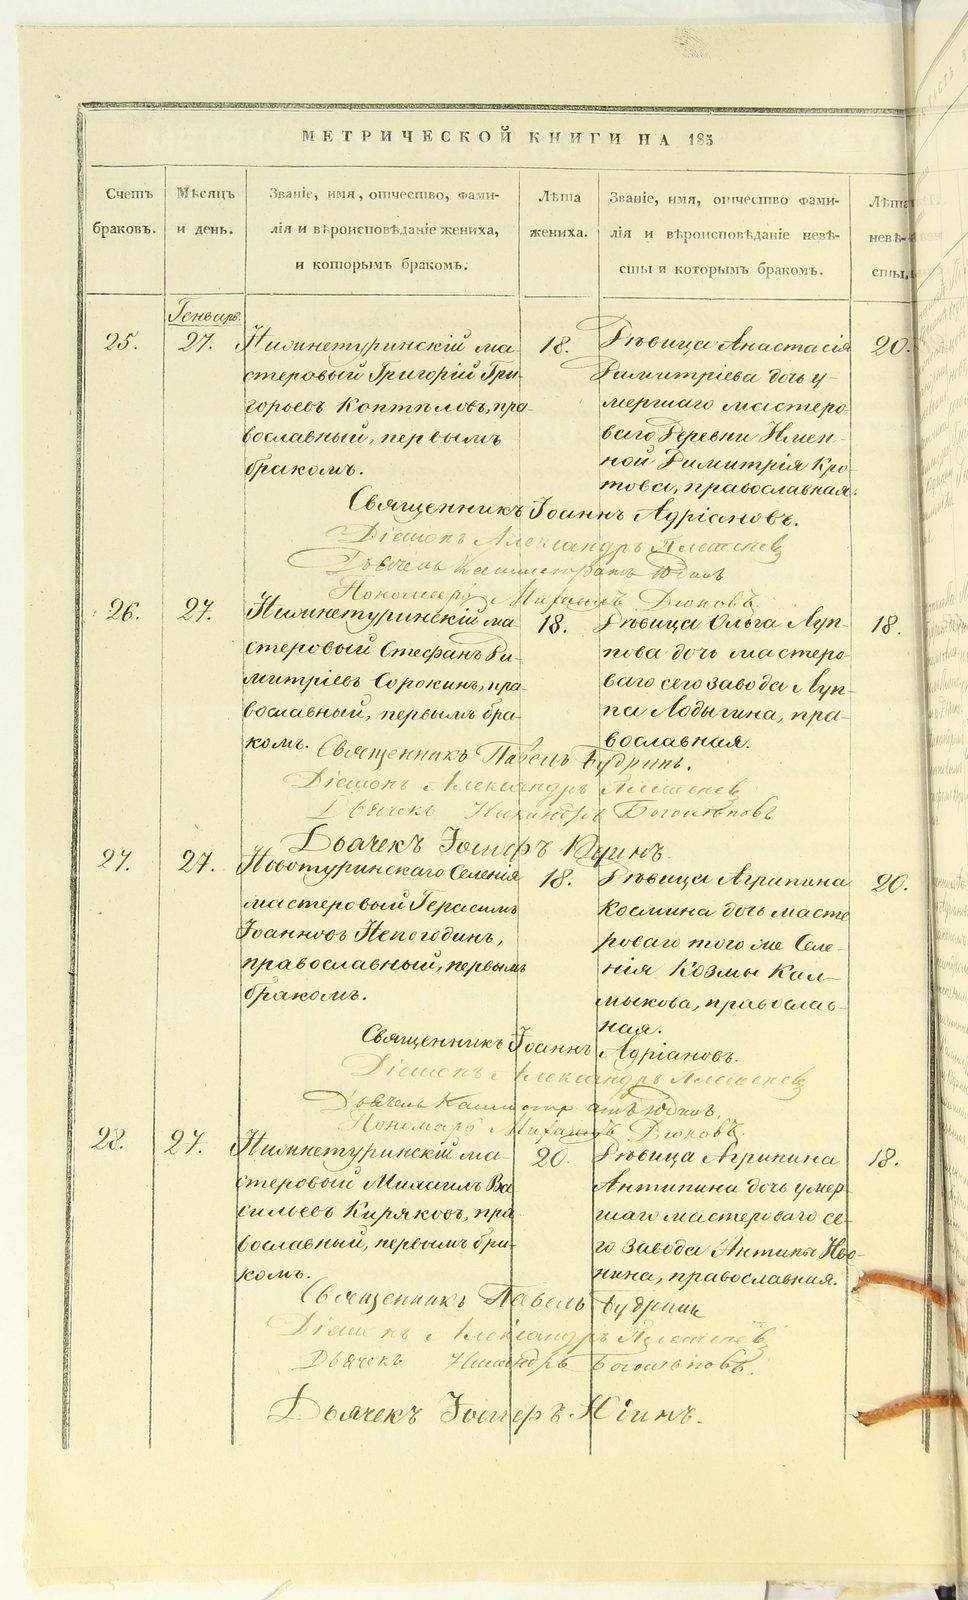 МЕТРИЧЕСКОЙ КНИГИ НА 185
Счетъ браковъ.
Мѣсяцъ и день.
Званіе, имя, отчество, фами-
лія и вѣроисповѣданіе жениха,
и которымъ бракомъ.
Лѣта жениха.
Званіе, имя, отчество фами-
лія и вѣроисповѣданіе невѣ-
сты и которымъ бракомъ.
Лѣта невѣ-
сты.
Генварь.
25.
27.
Нижнетуринскій ма-
стеровый Григорій Гри-
горьевъ Коптѣловъ, пра-
вославный, первымъ
бракомъ.
18.
Дѣвица Анастасія
Димитріева дочь у-
мершаго мастеро-
ваго Деревни Имен-
ной Димитрія Кро-
това, православная.
20.
Священникъ Іоаннъ Адріановъ.
Діаконъ Александръ
Дьячекъ Каллистратъ Юдинъ
Пономарь Михаилъ Дюковъ.
26.
27.
Нижнетуринскій ма-
стеровый Стефанъ Ди-
митріевъ Сорокинъ, пра-
вославный, первымъ бра-
комъ.
18.
Дѣвица Ольга Луп-
пова дочь мастеро-
ваго сего завода Луп-
па Лодыгина, пра-
вославная.
18.
Священникъ Павелъ Будринъ.
Діаконъ Александръ
Дьячекъ Никандръ Боголѣповъ
Дьячекъ Іосифъ
27.
27.
Новотуринскаго Селенія
мастеровый Герасимъ
Іоанновъ Непогодинъ,
православный, первымъ
бракомъ.
18.
Дѣвица Агрипина
Космина дочь масте
роваго того же Селе-
нія Козмы Кал-
мыкова, православ-
ная.
20.
Священникъ Іоаннъ Адріановъ.
Діаконъ Александръ
Дьячекъ Каллистратъ Юдинъ.
Пономарь Михаилъ Дюковъ.
28.
27.
Нижнетуринскій ма-
стеровый Михаилъ Ва
сильевъ Киряковъ, пра-
вославный, первымъ бра-
комъ.
20.
Дѣвица Агрипина
Антипина дочь умер-
шаго мастероваго се-
го завода Антипы
православная.
18.
Священникъ Павелъ Будринъ
Діаконъ Александръ
Дьячекъ Никандръ Боголѣповъ.
Дьячекъ Іосифъ